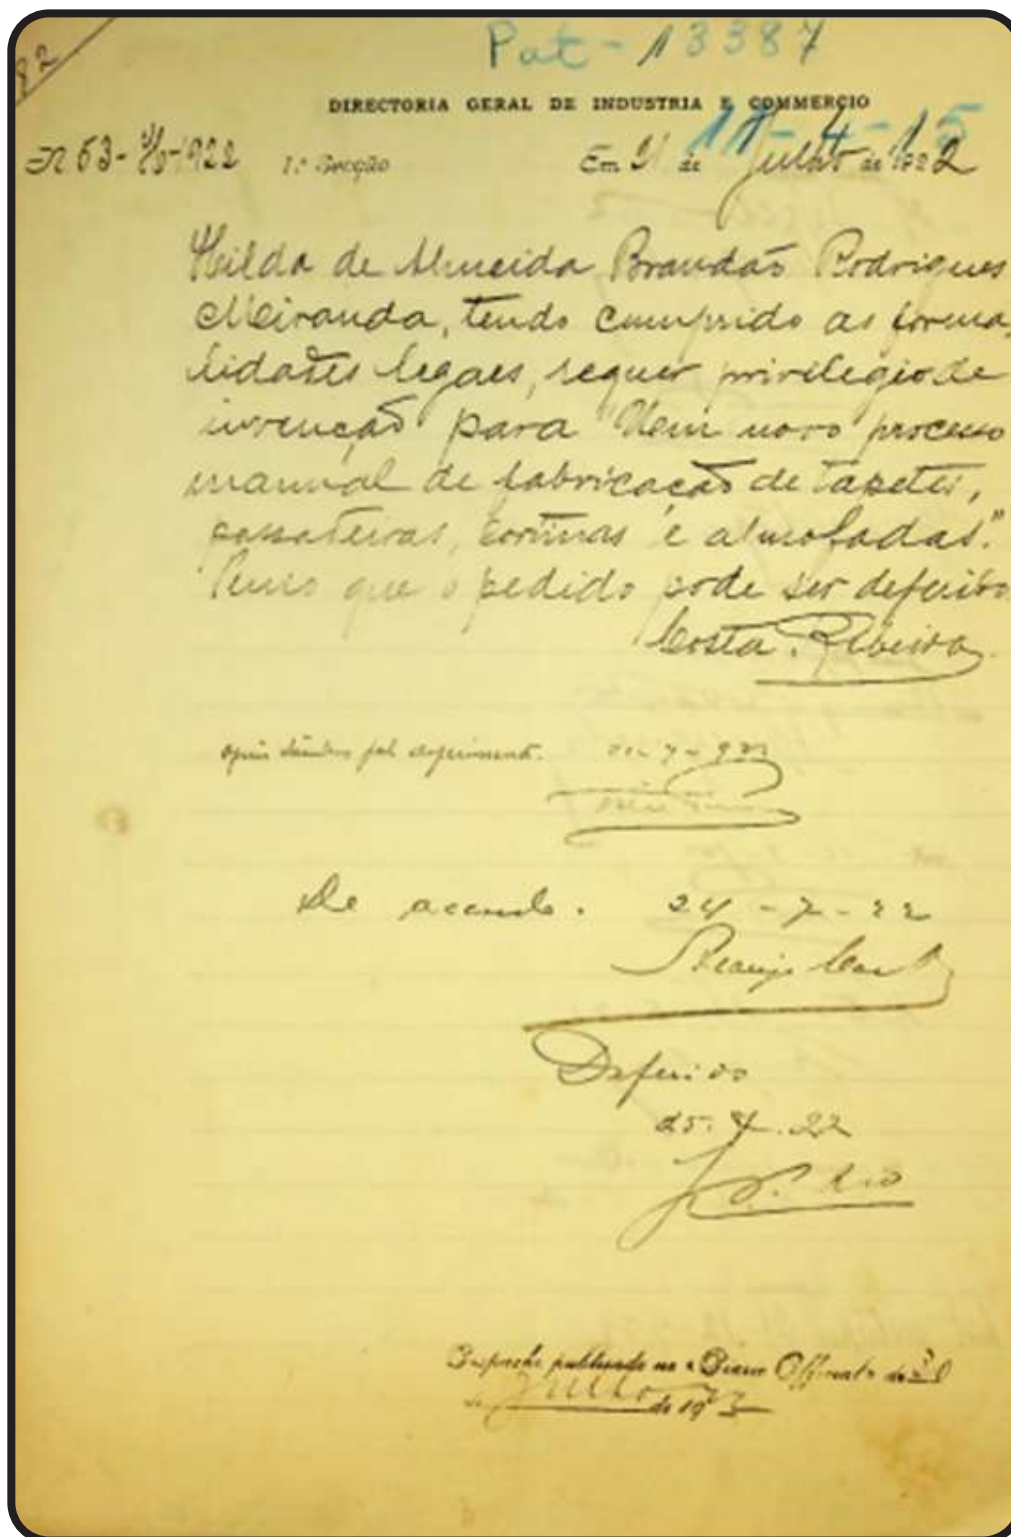 82
Pat - 13387
DIRECTORIA GERAL DE INDUSTRIA E COMMERCIO
11-4-15
N 63- 1922 1.ª Secção Em 21 de Julho de 1922
Hilda de Almeida Brandão Rodrigues
Miranda, tendo cumprido as forma
lidades legaes, requer privilegio de
invenção para "Um novo processo
manual de fabricação de tapetes,
passadeiras, cortinas e almofadas."
Penso que o pedido pode ser deferido
Costa Ribeiro
opino deferimento. 7-922
De accordo. 24-7-22
Araujo
Deferido
25.7.22
Rio
Despacho publicado no «Diario Official» de
de Julho de 19